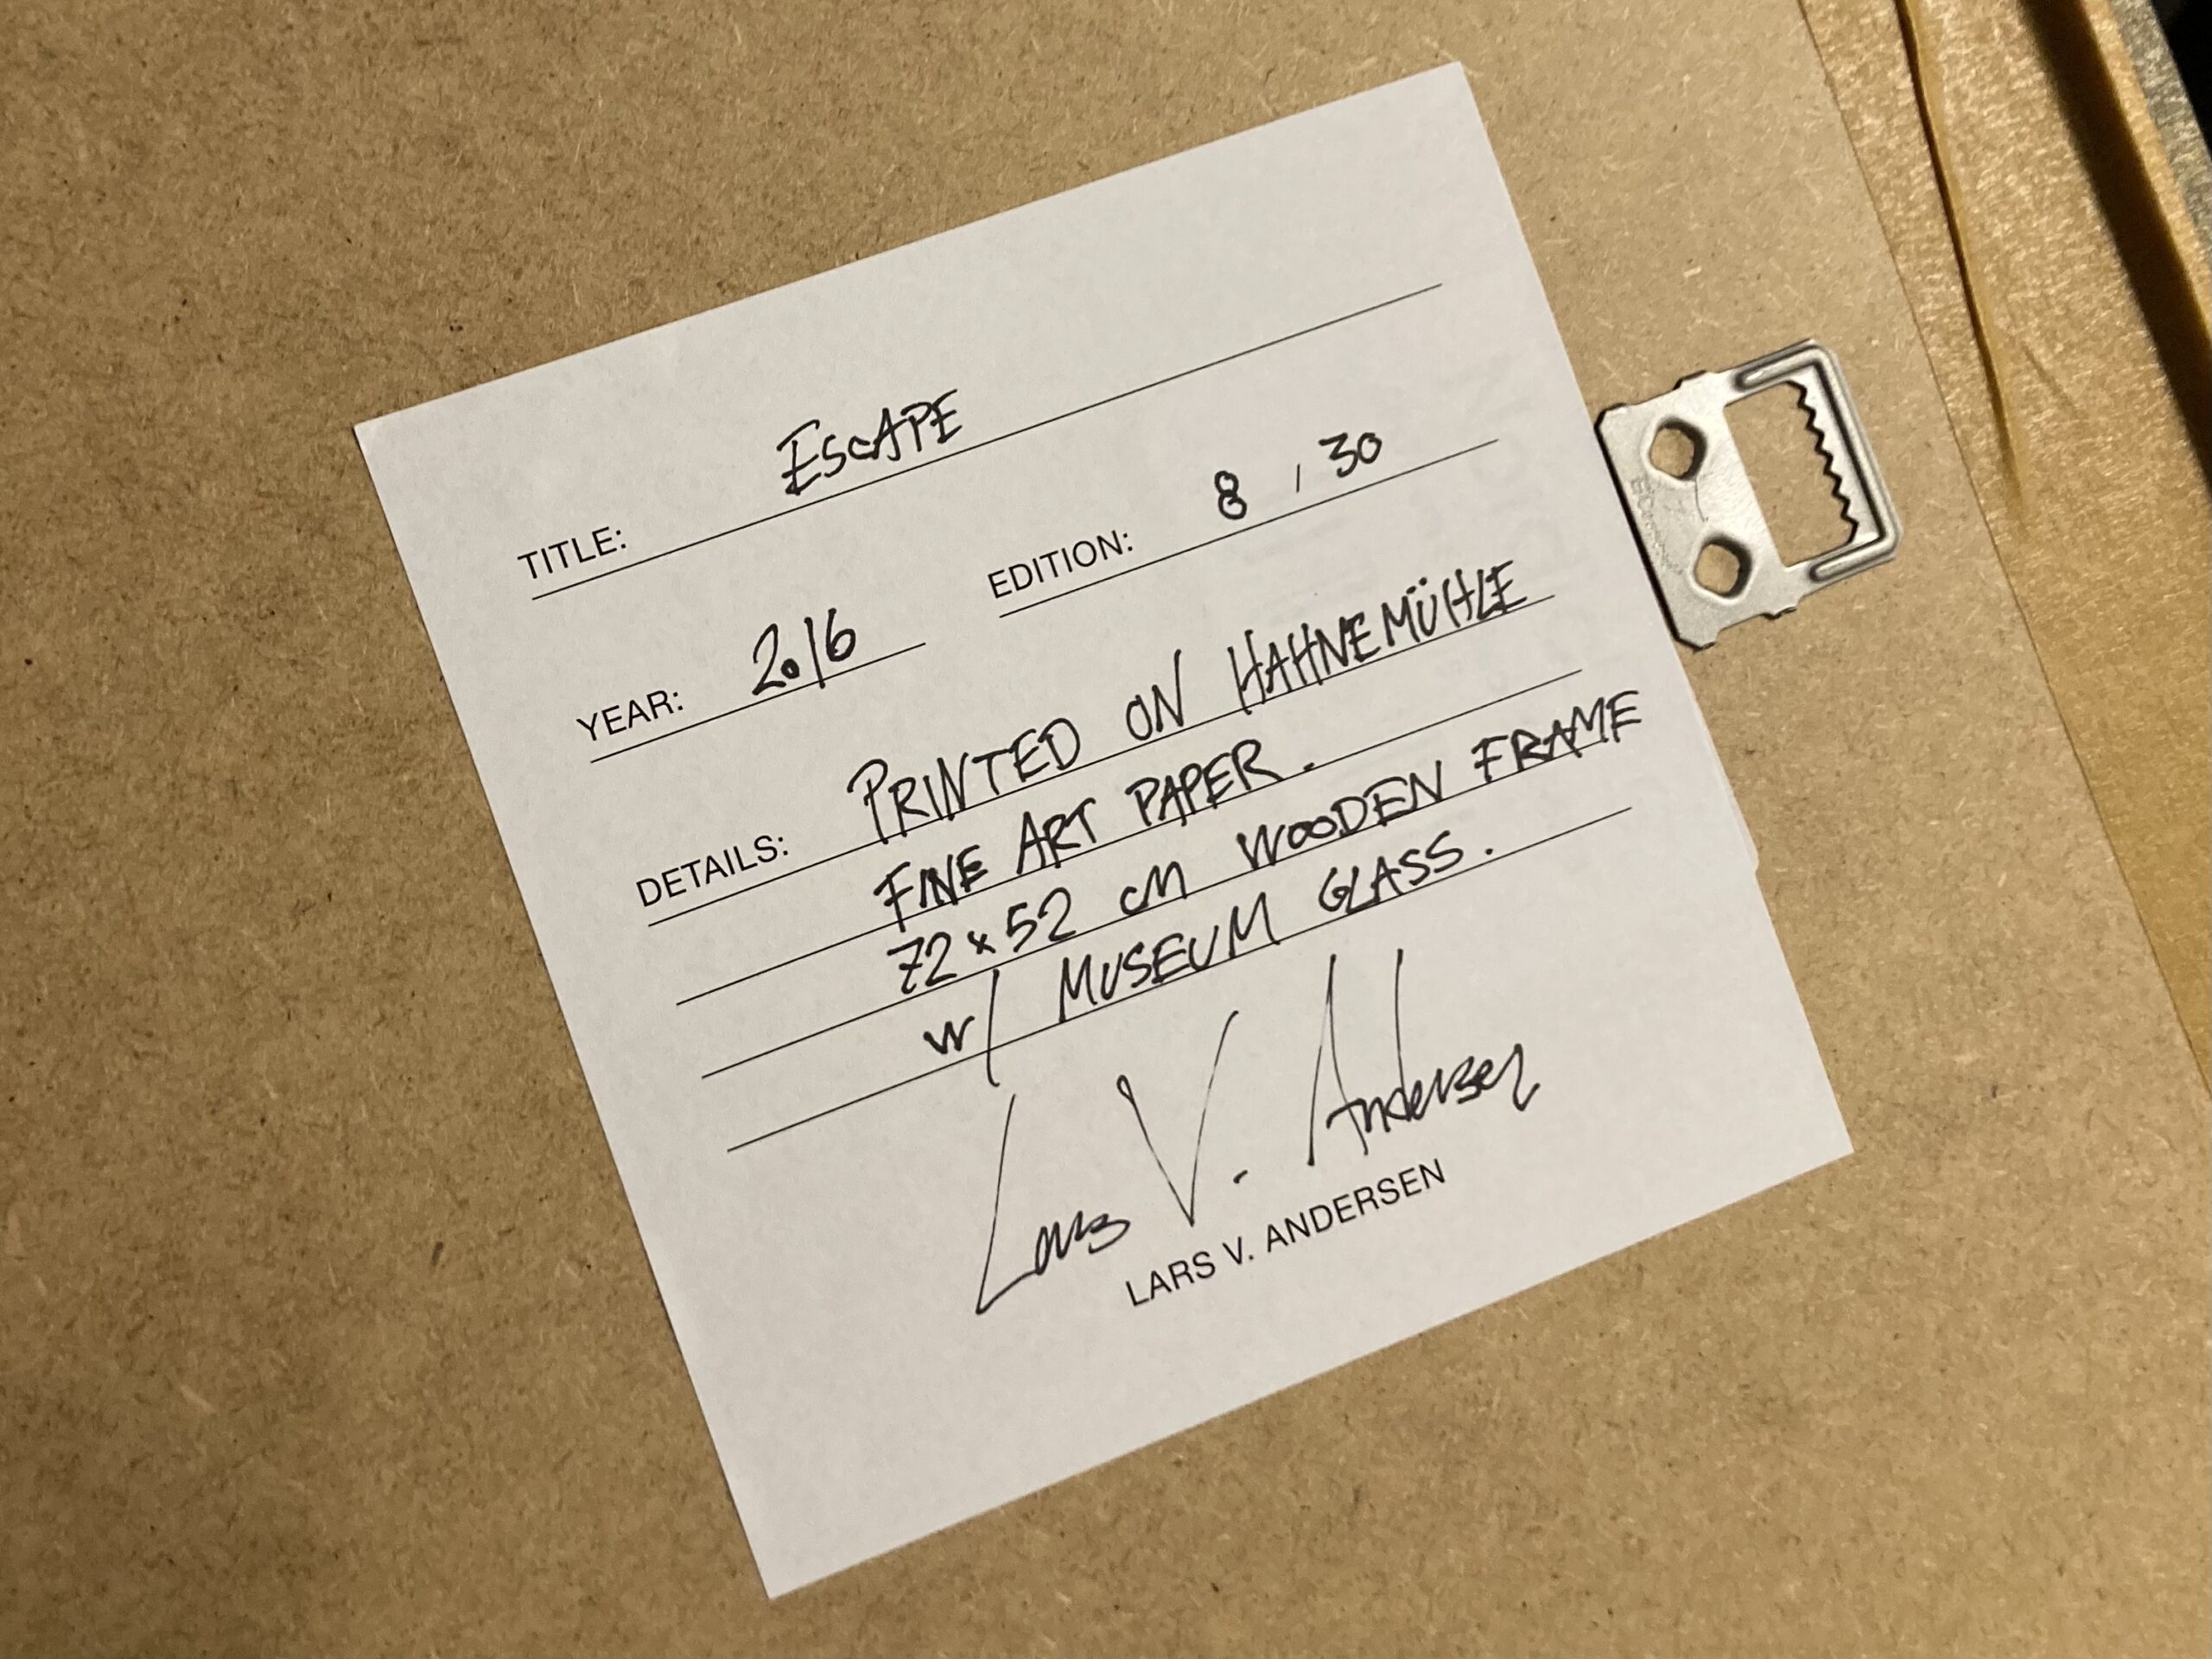 TITLE: ESCAPE
YEAR: 2016 EDITION: 8 / 30
DETAILS: PRINTED ON HAHNEMÜHLE
FINE ART PAPER.
72x52 CM WOODEN FRAME
W/ MUSEUM GLASS.
Lars V. Andersen
LARS V. ANDERSEN